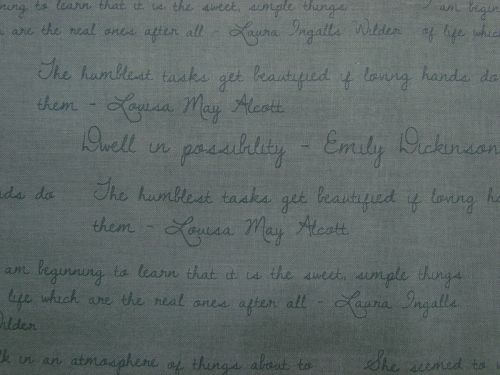 to learn that it is the sweet, simple things am begin
are the real ones after all - Laura Ingalls Wilder of life which
The humblest tasks get beautified if loving hands do
them - Louisa May Alcott
Dwell in possibility - Emily Dickinson
do The humblest tasks get beautified if loving
them - Louisa May Alcott
am beginning to learn that it is the sweet, simple things
life which are the real ones after all - Laura Ingalls
Wilder
in an atmosphere of things about to She seemed to